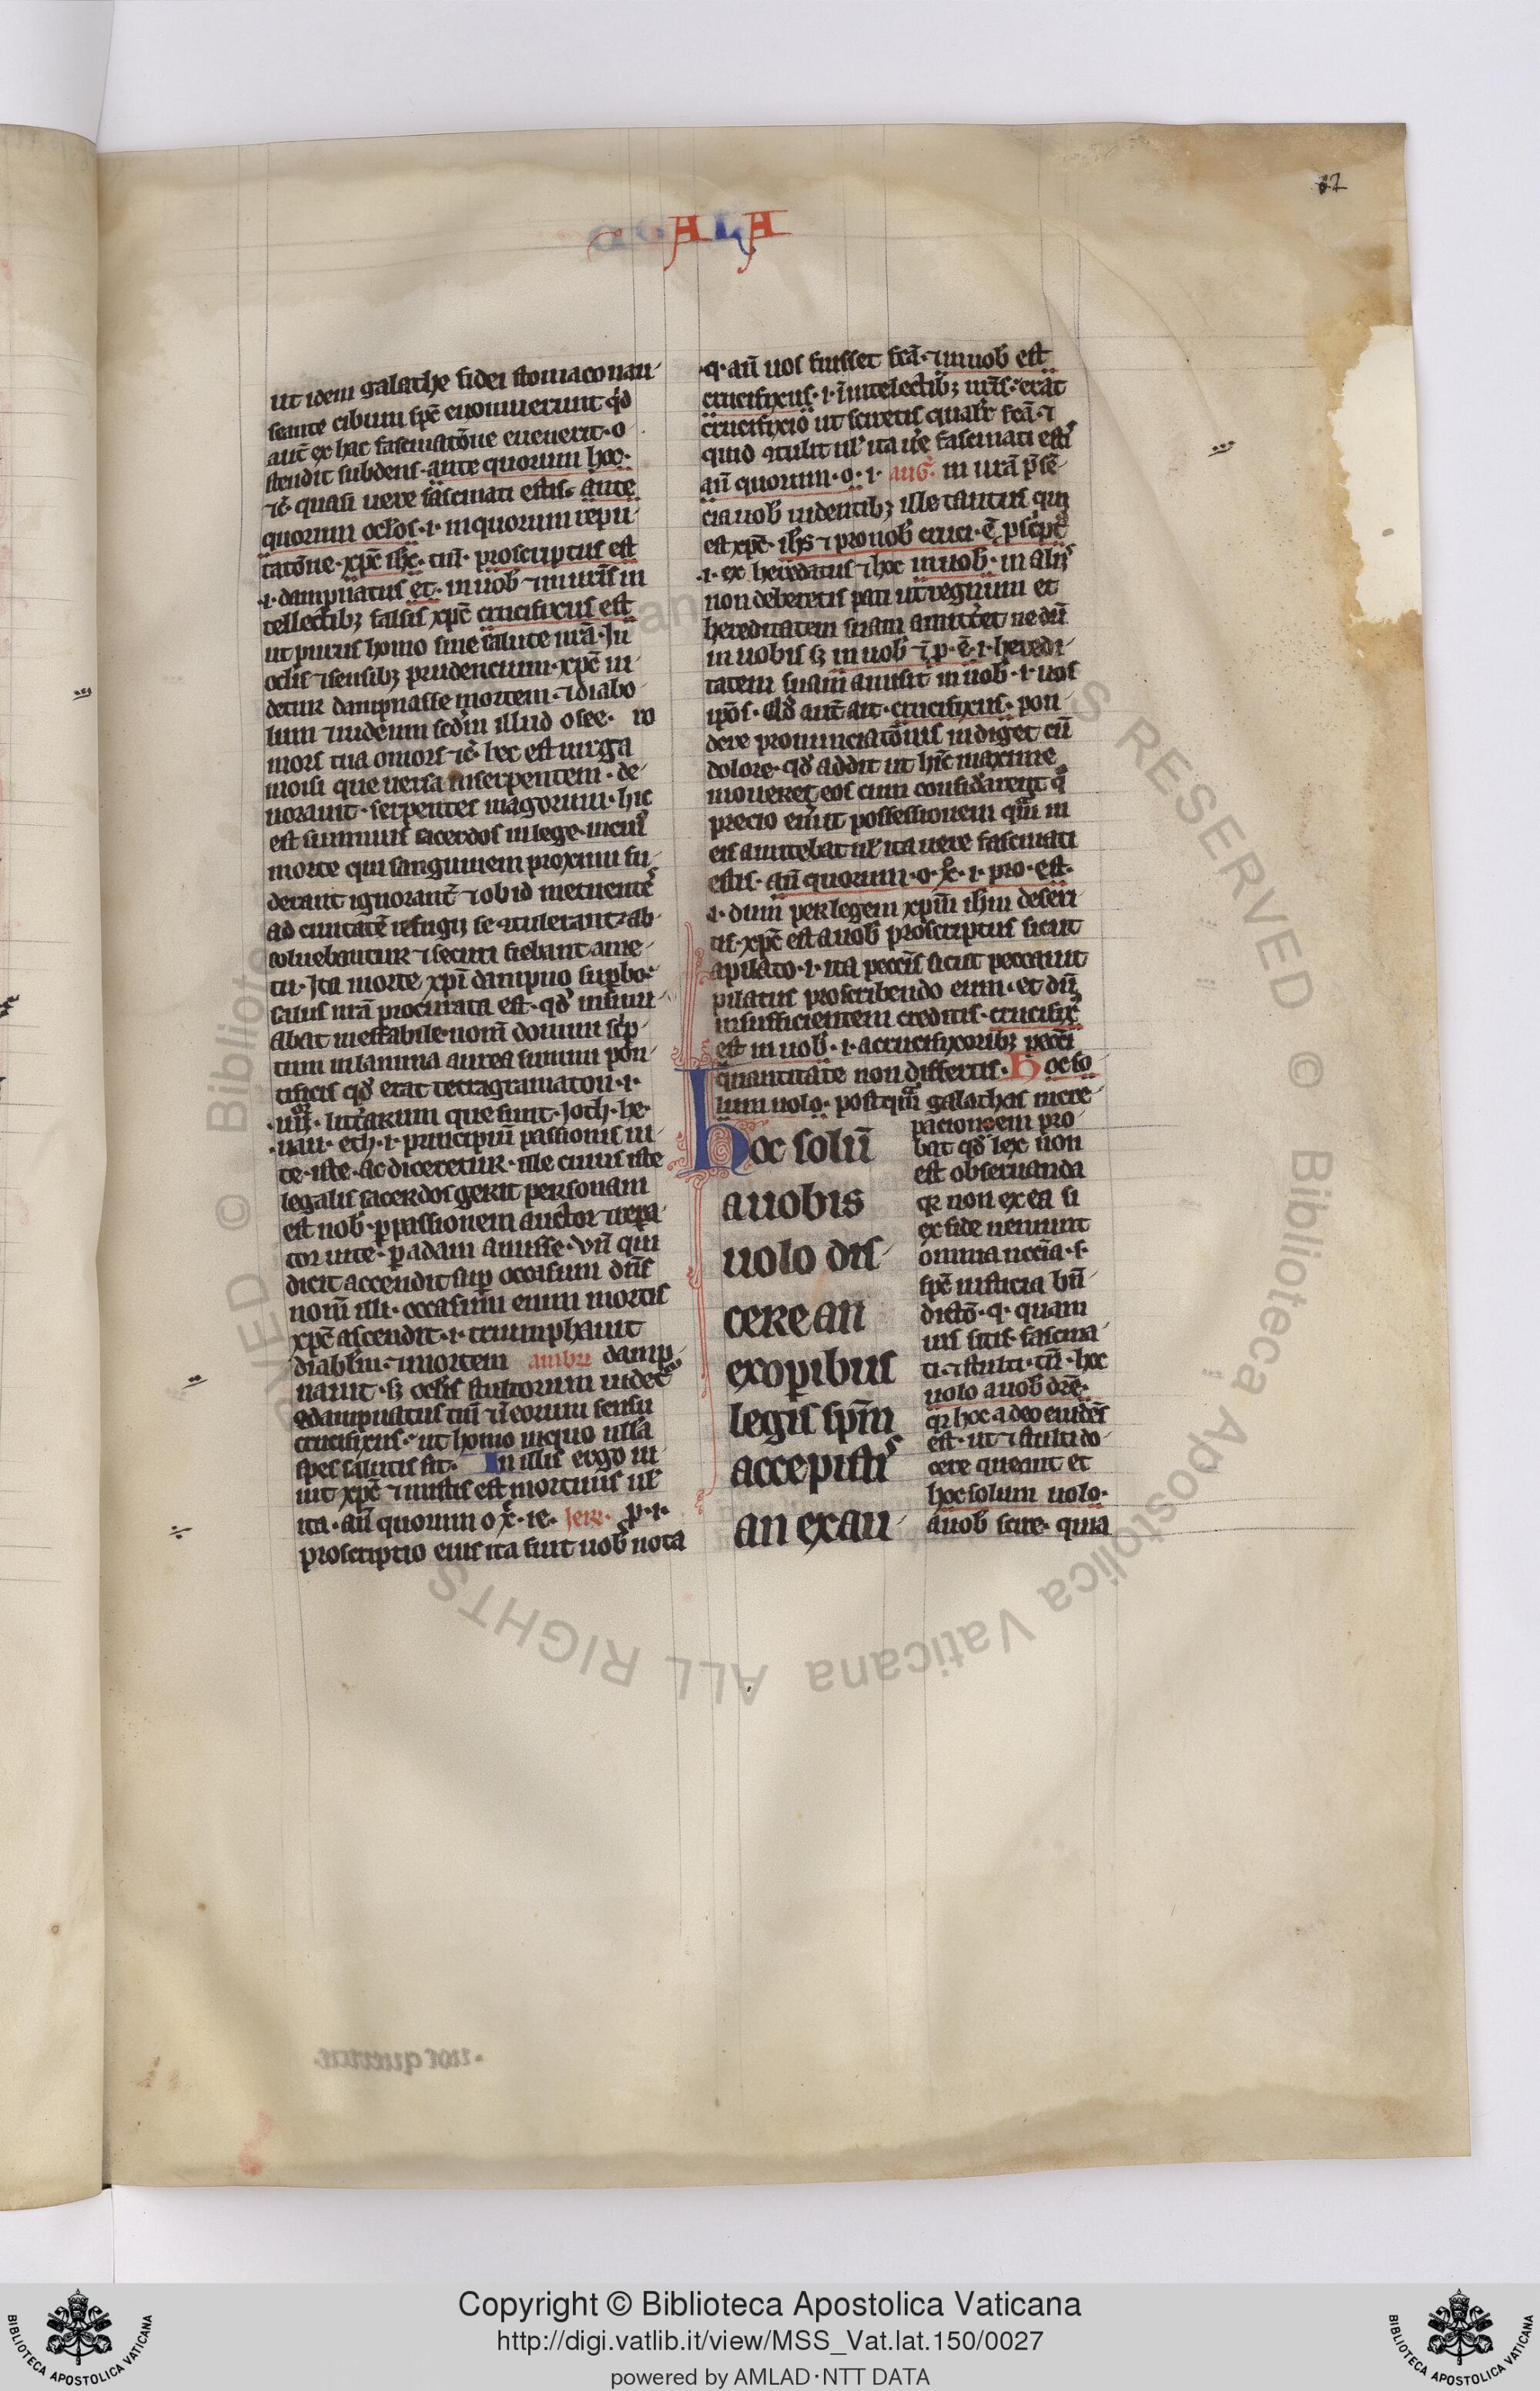 62
AD GALA
ut idem galathe fidei stomaco nau-
seante cibum sp̄c euomuerunt qd̓
aut̄ ex hac fascinatōne euenerit· o
stendit subdens· ante quorum hoc·
⁊c̄ quasi uere fascinati estis· ante
quorum oc̄los· i· in quorum repu-
tatōne· xp̄c ih̄c· tn̄· proscriptus est
·i· dampnatus et· in uob̄ ⁊ in ur̄is in
tellectibꝫ falsis xp̄c crucifixus est
ut purus homo sine salute ur̄a· In
oc̄lis ⁊ sensibꝫ prudencium· xp̄c ui-
detur dampnasse mortem· ⁊ diabo-
lum ⁊ iudeum sc̄dm illud osee· ro
mors tua o mors ⁊c̄ hec est uirga
moisi que uersa in serpentem· de-
uorauit· serpentes magorum· hic
est summus sacerdos in lege· in cui᷒
morte qui sanguinem proximi fu-
derant ignorant̄ ⁊ ob id metuente᷒
ad ciuitatē refugij se ꝯtulerant· ab-
soluebantur ⁊ securi fiebant a me-
tu· Ita morte xp̄i dampno sup̱bo·
salus nr̄a procurata est· qd̓ insinu-
abat ineffabile· nom̄ domini sc̓p-
tum in lamina aurea summi pon-
tificis qd̓ erat tetragramaton· i·
·iiij· litt̄arum que sunt· Joth· he·
·uau· eth· i· principiū passionis ui-
te· iste· ac diceretur· ille cuius iste
legalis sacerdos gerit personam
est nob̄· ꝑ passionem auctor ⁊ repa-
tor uite· ꝑ adam amisse· vn̄ qui
dicit accendit sup̱ occasum dn̄s
nom̄ illi· occasum enim mortis
xp̄c ascendit· i· triumphauit
diabl̄m ⁊ mortem ambr̄ damp
nauit· sꝫ oc̄lis stultorum uidet᷒
ꝯdampnatus tn̄ ⁊ ī eorum sensu
crucifixus· ut homo in quo nulla
spes salutis sit· In illis ergo ui-
uit xp̄c ⁊ iustis est mortuus ul̄
ita· an̄ quorum o x̄c· ie· Jere· p̄· i·
proscriptio eius ita fuit uob̄ nota
·q· an̄ uos fuisset fc̄a· ⁊ in uob̄ est
crucifixus· i· ī intelectibꝫ ur̄is· erat
crucifixio ut sciretis qualr̄ fc̄a· ⁊
quid ꝯtulit ul̄ ita ue fascinati esti᷒
an̄ quorum· o· i· aug̓· in ur̄a p̄sē-
cia uob̄ uidentibꝫ ille tantus qui
est xp̄c· ih̄s ⁊ pro uob̄ cruci· ē p̄scpt᷒
·i· ex heredatus ⁊ hoc in uob̄· in alij᷒
non deberetis pati ut regnum et
hereditatem suam amitt̄et ne dū
in uobis sꝫ in uob̄ ī p̄· ē· i· heredi-
tatem suam amisit in uob̄· i· uos
ip̄os· Qd̓ aut̄ ait· crucifixus· pon
dere pronunciatōnis indiget cū
dolore· qd̓ addit ut hīc maxime
moueret eos cum considarent qͦ
precio emit possessionem quā in
eis amittebat ul̄ ita uere fascinati
estis· an̄ quorum· o· x̄c· i· pro· est·
·i· dum per legem xp̄m ih̄m deseri
tis· xp̄c est a uob̄ proscriptus sicut
a pilato· i· ita pecc̄is sicut peccauit
pilatus proscribendo eum· et dū
insufficientem creditis· crucifix᷒
est in uob̄· i· a crucifixoribꝫ pecc̄i
quantitate non differtis· Hoc so
lum uolo· postquā galathas incre-
pacionem pro
bat qd̓ lex non
est obseruanda
qr̄ non ex ea sꝫ
ex fide ueniunt
omnia ncc̄ia· s·
sp̄c iusticia bn̄-
dictō· q· quam
uis sitis· fascina-
ti· ⁊ stulti· tn̄· hoc
uolo a uob̄ dr̄e·
qr̄ hoc adeo euidēs
est· ut ⁊ stulti do-
cere queant et
hoc solum uolo·
a uob̄ scire· quia
hoc solū
a uobis
uolo dis-
cere an
ex op̱ibus
legis sp̄m
accepisti᷒
an ex au-
Copyright © Biblioteca Apostolica Vaticana
http://digi.vatlib.it/view/MSS_Vat.lat.150/0027
powered by AMLAD·NTT DATA